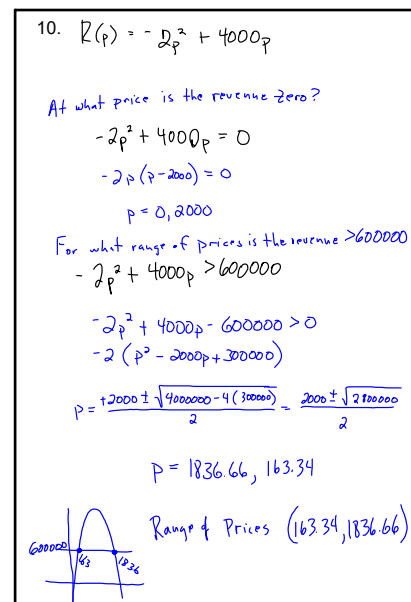 10. R(p) = - 2p² + 4000p
At what price is the revenue zero?
-2p² + 4000p = 0
-2p (p-2000) = 0
p = 0, 2000
For what range of prices is the revenue >600000
- 2p² + 4000p >600000
-2p² + 4000p - 600000 > 0
-2 (p² - 2000p + 300000)
p = (+2000 ± √(4000000 - 4(300000)))/2 = (2000 ± √2800000)/2
p = 1836.66, 163.34
Range of Prices (163.34, 1836.66)
600000
163
1836